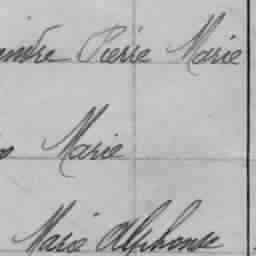 Pierre Marie
Marie
Marie Alphonse